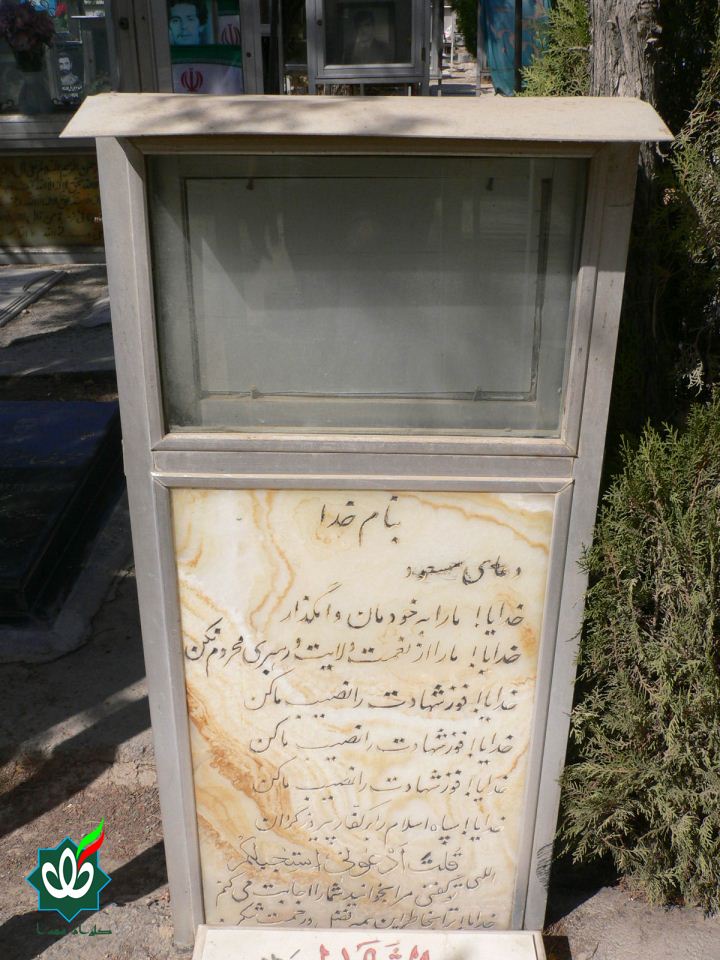 بنام خدا
دعای مسعود
خدایا! ما را به خودمان وا مگذار
خدایا! ما را از نعمت ولایت و رهبری محروم نکن
خدایا! فوز شهادت را نصیب ما کن
خدایا! فوز شهادت را نصیب ما کن
خدایا! فوز شهادت را نصیب ما کن
خدایا! سپاه اسلام را بر کفار پیروز گردان
اللهی قلت أدعونی استجب لکم
تو گفتی مرا بخوانید شما را اجابت می کنم
خدایا! ترا بخاطر این همه در رحمت شکر